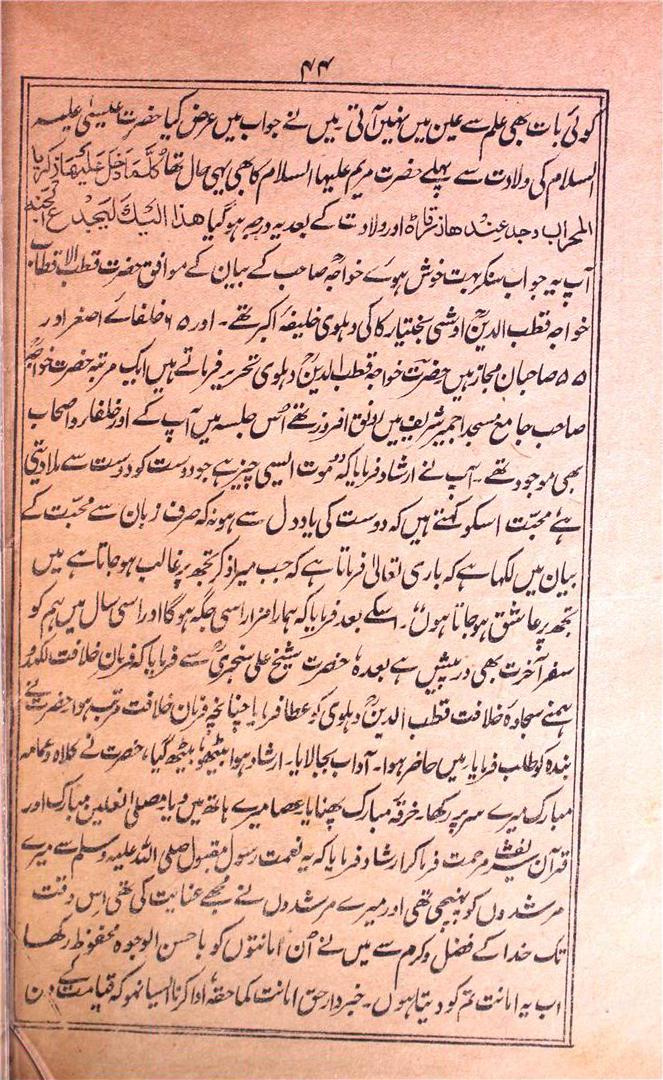 ۴۴
کوئی بات بھی علم سے عین میں نہیں آتی میں نے جواب میں عرض کیا حضرت عیسیٰ علیہ
السلام کی ولادت سے پہلے حضرت مریم علیہا السلام کا بھی یہی حال تھا کُلَّمَا دَخَلَ عَلَیْهَا زکریا
المحراب وجد عندھا رزقا ۃ اور ولادت کے بعد یہ درجہ ہوگیا ھذا الیک
آپ یہ جواب سنکر بہت خوش ہوئے خواجہؒ صاحب کے بیان کے موافق حضرت قطب الاقطاب
خواجہ قطب الدینؒ اوشی بختیار کاکی دہلوی خلیفۂ اکبر تھے۔ اور ۶۵ خلفائے اصغر اور
۵۵ صاحبان مجاز ہیں حضرت خواجہ قطب الدینؒ دہلوی تحریر فرماتے ہیں ایک مرتبہ حضرت خواجہؒ
صاحب جامع مسجد اجمیر شریف میں رونق افروز تھے اُس جلسہ میں آپ کے اور خلفار و اصحاب
بھی موجود تھے۔ آپ نے ارشاد فرمایا کہ ”موت ایسی چیز ہے جو دوست کو دوست سے ملا دیتی
ہے محبت اسکو کہتے ہیں کہ دوست کی یاد دل سے ہو نہ کہ صرف زبان سے محبّت کے
بیان میں لکھا ہے کہ باری تعالیٰ فرماتا ہے کہ جب میرا ذکر تجھ پر غالب ہو جاتا ہے میں
تجھ پر عاشق ہو جاتا ہوں“۔ اسکے بعد فرمایا کہ ہمارا مزار اسی جگہ ہوگا اور اسی سال میں ہم کو
سفر آخرت بھی درپیش ہے بعدہٗ حضرت شیخ علی سنجریؒ سے فرمایا کہ فرمان خلافت لکھدو
ہمنے سجادہ خلافت قطب الدینؒ دہلوی کو عطا فرمایا چنانچہ فرمان خلافت مرتب ہوا حضرت نے
بندہ کو طلب فرمایا۔ میں حاضر ہوا۔ آداب بجالایا۔ ارشاد ہوا بیٹھو، بیٹھ گیا، حضرت نے کلاہ و عمامہ
مبارک میرے سر پر رکھا۔ خرقہ مبارک پہنایا۔ عصا میرے ہاتھ میں دیا مصلیٰ نعلین مبارک اور
قرآن شریف مرحمت فرما کر ارشاد فرمایا کہ یہ نعمت رسول مقبول صلی اللہ علیہ وسلم سے میرے
مرشدوں کو پہنچی تھی اور میرے مرشدوں نے مجھے عنایت کی تھی اس وقت
تک خدا کے فضل و کرم سے میں نے اُن امانتوں کو باحسن الوجوہ محفوظ رکھا
اب یہ امانت تم کو دیتا ہوں۔ خبردار حق امانت کما حقہٗ ادا کرنا ایسا نہو کہ قیامت کے دن